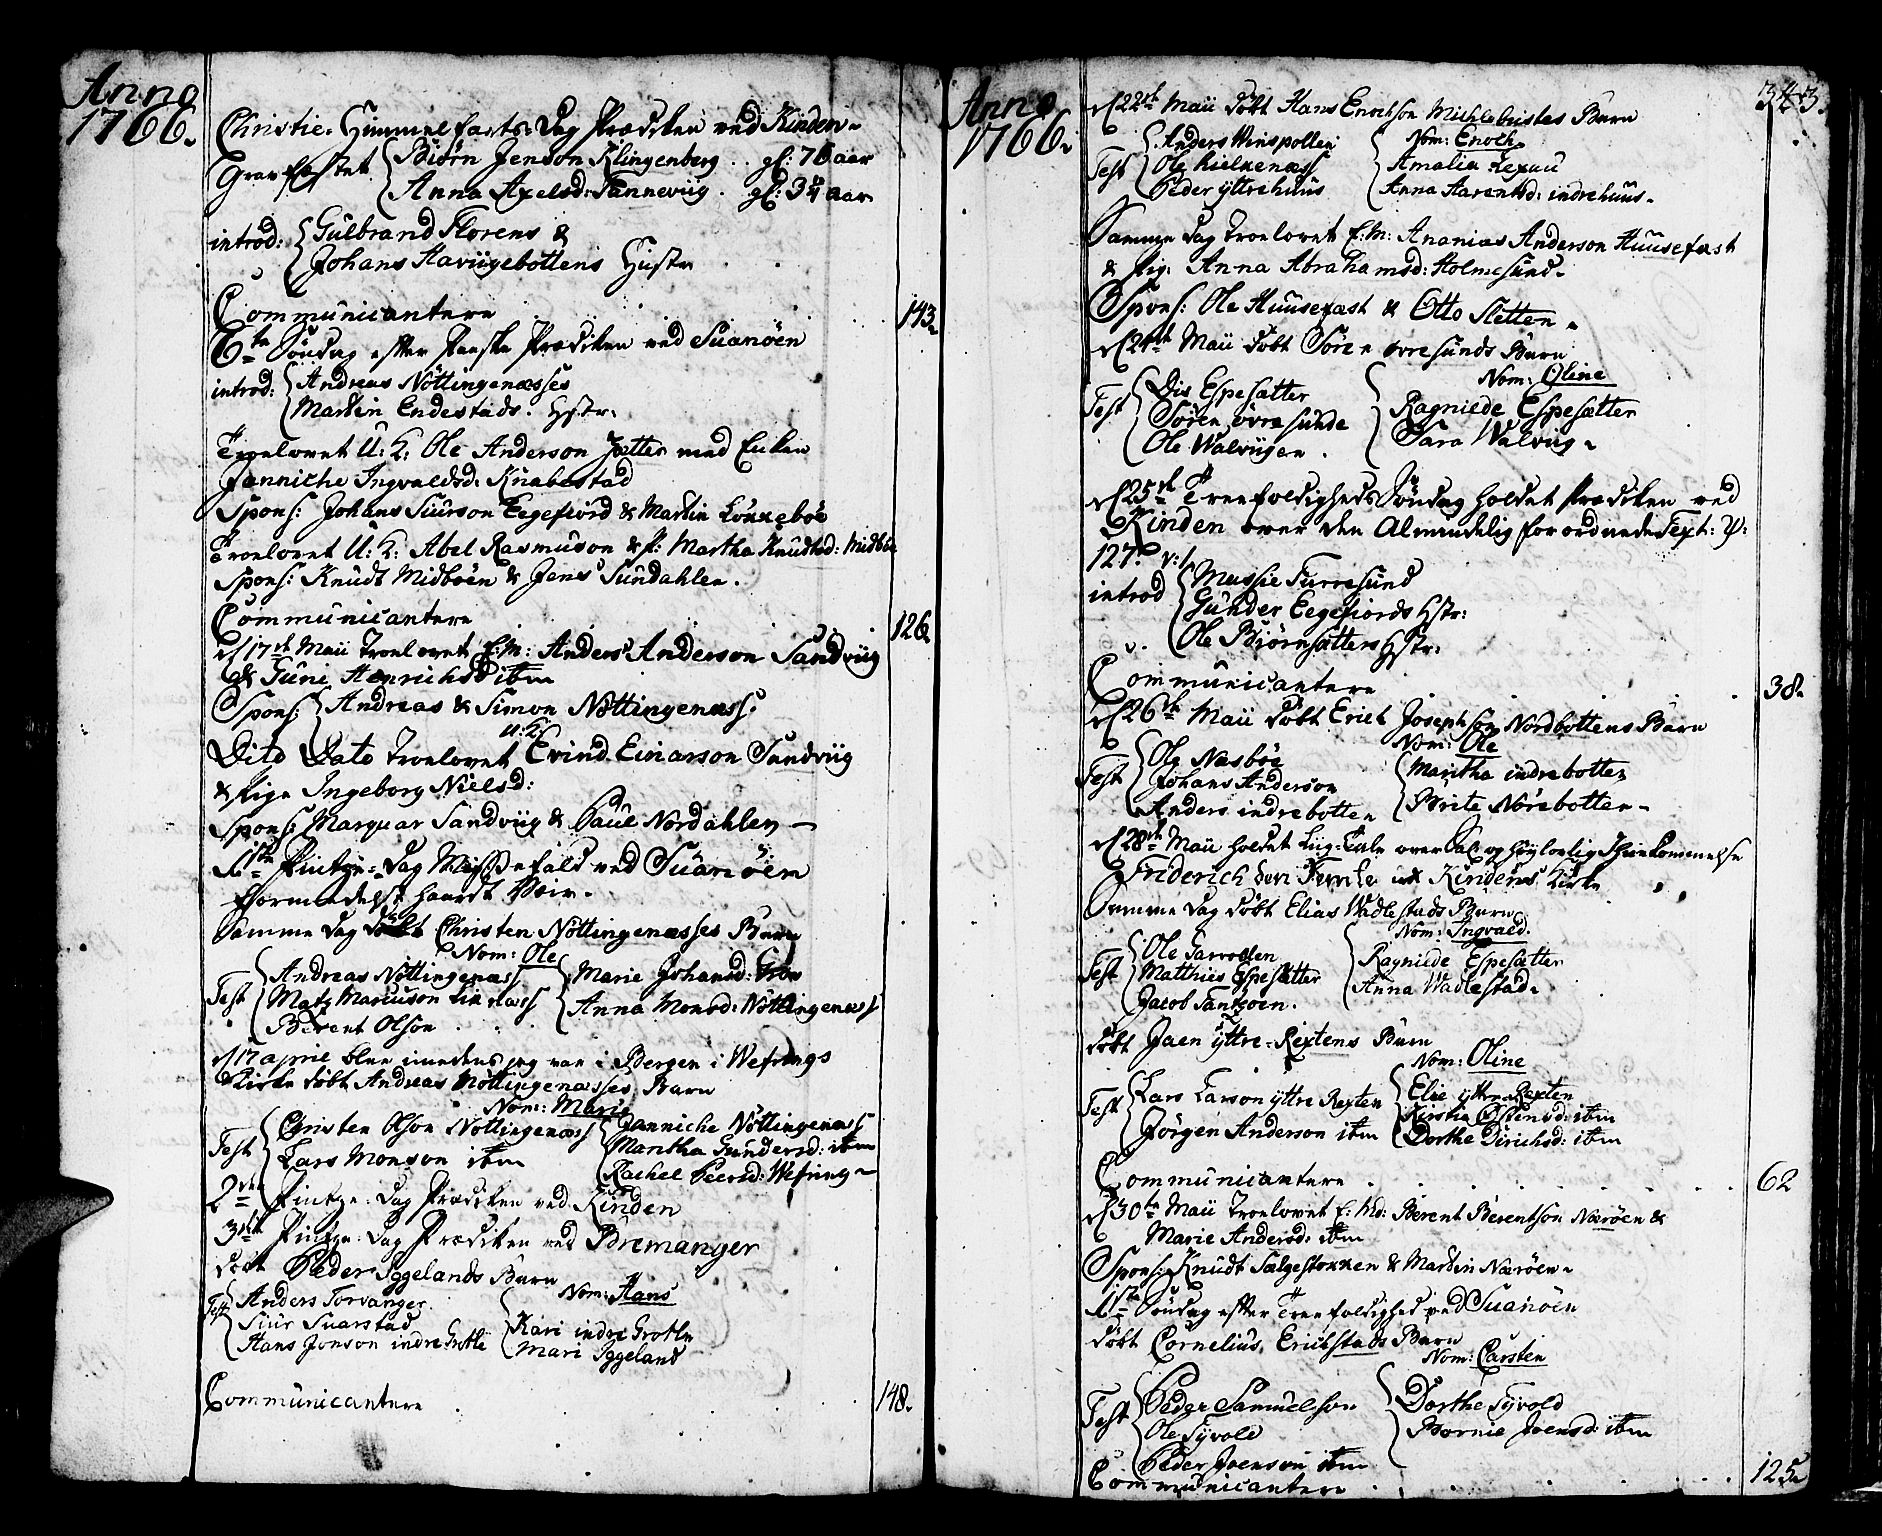 Anno
1766.
Christie-Himmelfarts-Dag Prædiken ved Kinden
Gravfæstet Biørn Jenson Klingenberg .. gl: 76 aar
Anna Axelsd: Tannevüg . gl: 34 aar
introd: Gulbrand Florens &
Johans Havügebottens Hustr
Communicantere 143.
6te Søndag efter Paaske Prædiken ved Suanöen
introd: Andreas Nöttingenæsses
Martin Endestads. Hstr.
Troelovet U: K: Ole Anderson Zetter med Enken
Janniche Ingvaldsd: Knabestad
Spons: Johans Siurson Eegefiord & Martin Lönneböe
Troelovet U: K: Abel Rasmuson & p: Martha Knudtsd: Midböe
Spons: Knudt Midböen & Jens Sundahlen.
Communicantere 126
d 17de Maii Troelovet E: M: Anders Anderson Sandvüg
& Guni Henrichsd ibm
Spons: Andreas & Simon Nöttingenæss
Dito Dato Troelovet U: K: Evind Einarson Sandvüg
& Pige Ingeborg Nielsd:
Spons: Marquar Sandvüg & Paul Nordahlen
1ste Pintze-Dag Messefald ved Suanöen
formedelst haardt Veir.
Samme Dag döbt Christen Nöttingenæsses Barn
Nom: Ole
Test Andreas Nöttingenæss
Matz Marcuson Lienæss
Berent Olson
Marie Johansd: ibm
Anna Monsd: Nöttingenæss
d 17 aprie blev imedens jeg var i Bergen i Wefrings
Kirke döbt Andreas Nöttingenæsses Barn
Nom: Marie
Test Christen Olson Nöttingenæss
Lars Monson ibm
Janniche Nöttingenæss
Maritha Gundersd: ibm
Rachel Peersd: Wefring
2den Pintze-Dag Prædiken ved Kinden
3die Pintze-Dag Prædiken ved Bremanger
Döbt Peder Iggelands Barn
Nom: Hans
Test Anders Torvanger.
Siur Suarstad
Hans Jonson indre Grotle
Kari indre Grotle
Mari Iggeland
Communicantere 148.
Anno
1766.
343.
d 22de Maii döbt Hans Enochson Michlebustes Barn
Nom: Enoch
Test Anders Winspollen
Ole Kielkenæss
Peder ÿttrehuus
Amalia Rexau
Anna Aarentsd: indrehuus.
Samme Dag Troelovet E: M: Ananias Anderson Huusefast
& Pig: Anna Abrahamsd: Holmesund.
Spons: Ole Huusefast & Otto Sletten.
d 24de Maii döbt Sören övresunds Barn
Nom: Oline
Test Dis Espesætter
Sören övresunde
Ole Walvügen.
Ragniede Espesætter
Sara Walvüg
d 25de Treefoldigheds Söndag holdet Prædiken ved
Kinden over den Almindelig forordnede Text: ψ:
127. v: 1
introd Massie Furresund
Gunder Eegefiords Hstr:
Ole Biörnsætters Hstr.
Communicantere 38.
d 26de Maii döbt Erich Josephson Nordbottens Barn
Nom: Ole
Test Ole Næsböe
Johans Anderson
Anders indrebotten
Maritha indrebotten
Brite Nörebotten
d 28de Maii holdet Liig-Tale over Sal: og höylovlig Ihukommelse
Friderich den Femte udi Kindens Kirke
Samme Dag döbt Elias Wadlestads Barn
Nom: Ingvald.
Test Ole Sarvollen
Matthies Espesætter
Jacob Tantzoen.
Ragniede Espesætter
Anna Wadlestad.
döbt Jaen ÿttre-Rextens Barn
Nom: Oline
Test Lars Larson ÿttre Rexten
Jörgen Anderson ibm
Elie ÿttre Rexten
Kirstie Östensd: ibm
Dorthe Dirichsd: ibm
Communicantere 62
d 30te Maii Troelovet E: Md: Berent Berentson Næröen &
Marie Andersd: ibm
Spons: Knudt Sælgestokken & Martin Næröen
1ste Söndag efter Treefoldighed ved Suanöen
döbt Cornelius Erichstads Barn
Nom: Carsten
Test Peder Samuelson
Ole Tÿvold
Peder Jaenson ibm
Dorthe Tÿvold
Bornie Joensd: ibm
Communicantere 125